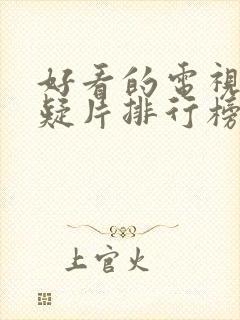 好看的電視
疑片排行榜
上官火